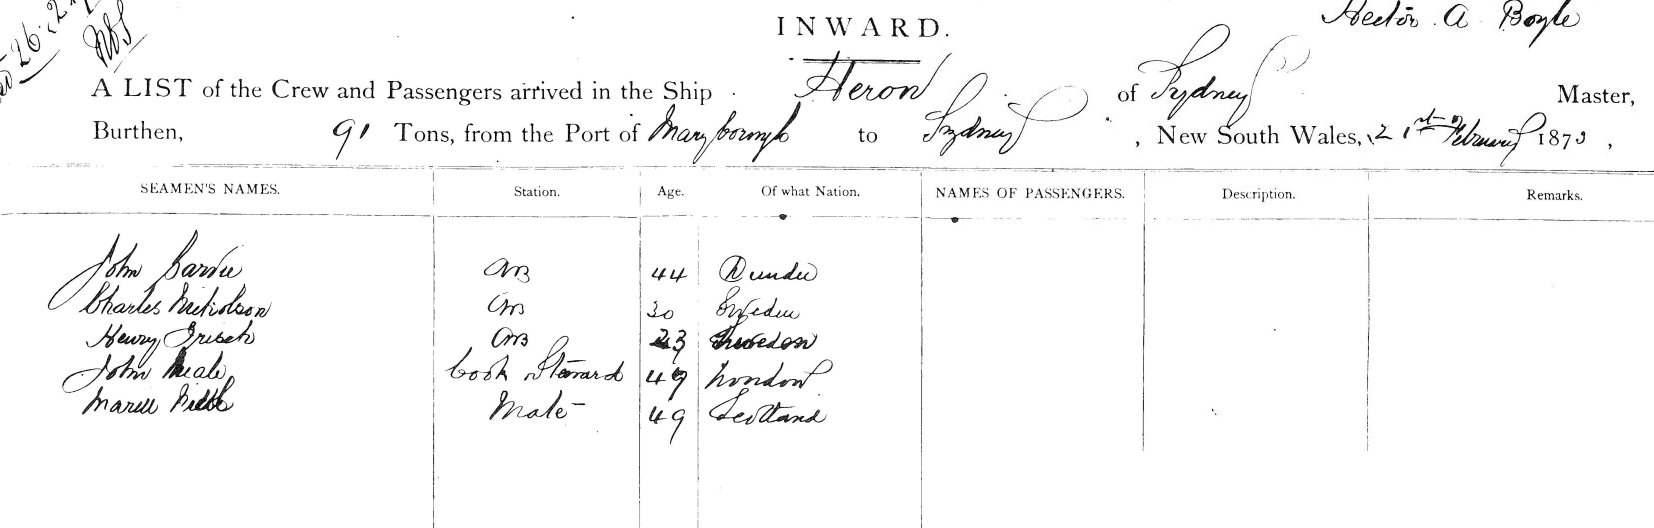 INWARD.
Hector A Boyle
A LIST of the Crew and Passengers arrived in the Ship Heron of Sydney Master,
Burthen, 91 Tons, from the Port of Maryborough to Sydney, New South Wales, 21st February 1873,
SEAMEN'S NAMES. Station. Age. Of what Nation. NAMES OF PASSENGERS. Description. Remarks.
John AB 44 Dundee
Charles Nicholson AB 30 Sweden
Henry Frisch AB 23 Sweden
John Neale Cook Steward 49 London
Mate 49 Scotland